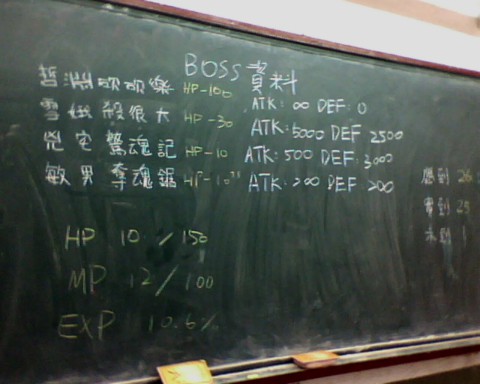 BOSS 資料
哲淵吹吹樂 HP-100 ATK:∞ DEF:0
雪娥殺很大 HP-30 ATK:5000 DEF 2500
兇宅驚魂記 HP-10 ATK:500 DEF:3000
敏男奪魂鋸 ATK:200 DEF:200
應到
實到 25
未到 1
HP 10/150
MP 12/100
EXP 10.6%